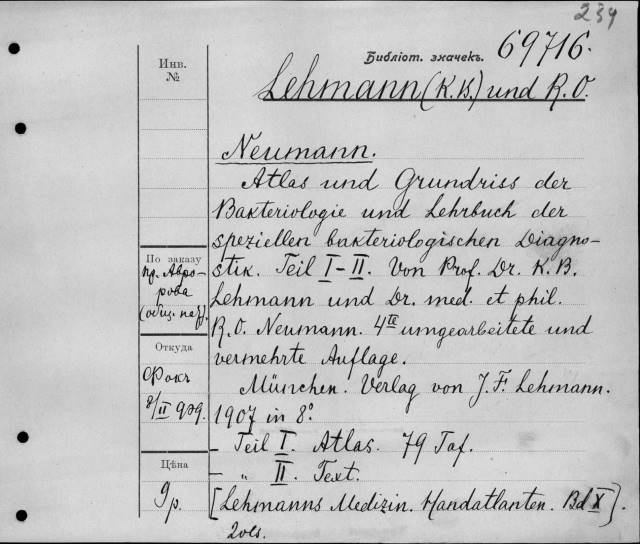 239
Библіот. значекъ. 69716.
Инв.
№
Lehmann (K.B.) und R.O.
Neumann.
Atlas und Grundriss der
Bakteriologie und Lehrbuch der
speziellen bakteriologischen Diagno-
stik. Teil I–II. Von Prof. Dr. K.B.
Lehmann und Dr. med. et phil.
R.O. Neumann. 4te umgearbeitete und
vermehrte Auflage.
München. Verlag von J.F. Lehmann.
1907 in 8°.
- Teil I. Atlas. 79 Taf.
- „ II. Text.
[Lehmanns Medizin. Handatlanten. Bd X].
2 vols.
По заказу
пр. Авро-
рова
Откуда
Фокъ
Цѣна
9 р.